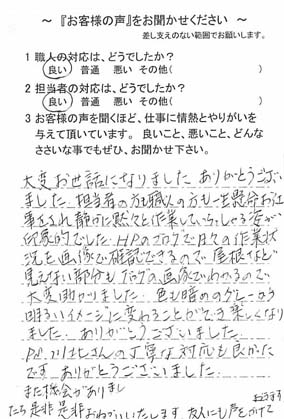 ～『お客様の声』をお聞かせください～
差し支えのない範囲でお願いします。
1 職人の対応は、どうでしたか？
良い 普通 悪い その他( )
2 担当者の対応は、どうでしたか？
良い 普通 悪い その他( )
3 お客様の声を聞くほど、仕事に情熱とやりがいを
与えて頂いています。 良いこと、悪いこと、どんな
ささいな事でもぜひ、お聞かせ下さい。
大変お世話になりました ありがとうござい
ました。担当者の方も職人の方も一生懸命お仕
事をされ静かに黙々と作業していらっしゃる姿が
印象的でした。HPのブログで日々の作業状
況を画像で確認できるので 屋根など
見えない部分も ブログの画像でわかるので
大変助かりました。色も暗めのグレーから
明るいイメージに変わることができ楽しくなり
ました。ありがとうございました。
P.S. さんの丁寧な対応も良かった
です ありがとうございました
また機会がありまし
たら是非是非おねがいいたします 友人にも声をかけて
おきます